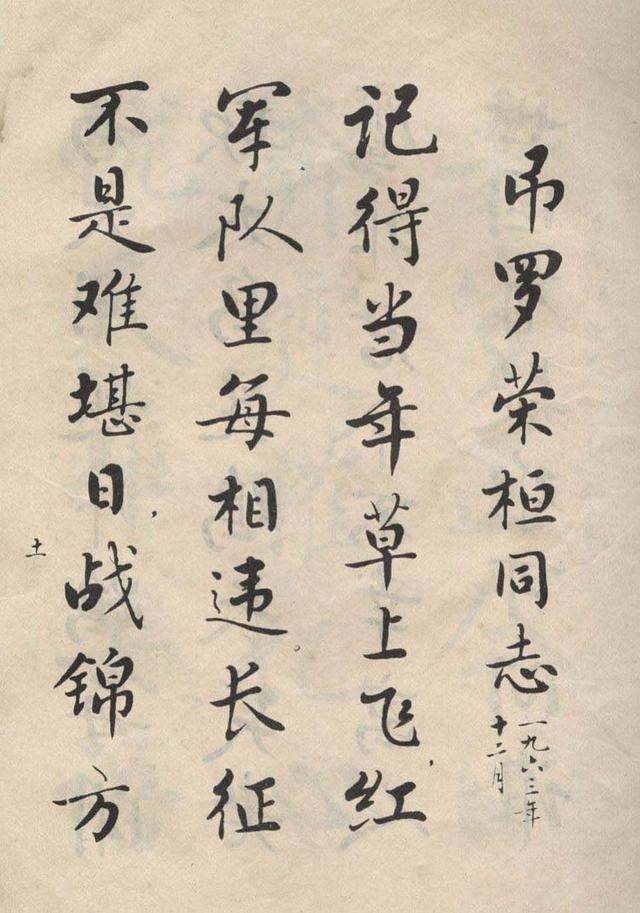 吊罗荣桓同志
一九六三年
十二月
记得当年草上飞，红
军队里每相违。长征
不是难堪日，战锦方
十一